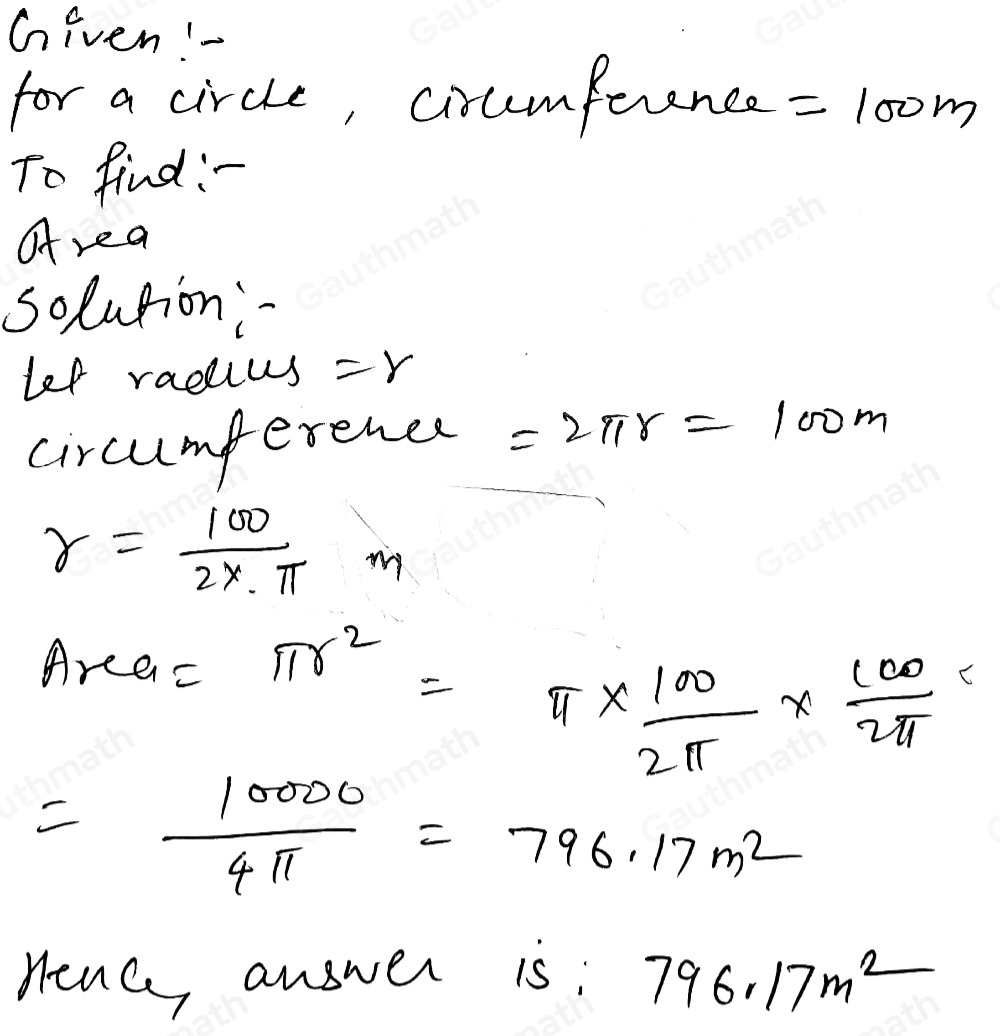 Given :-
for a circle, circumference = 100m
To find :-
Area
Solution :-
Let radius = r
circumference = 2πr = 100m
r = 100 / 2×.π m
Area = πr² = π × 100/2π × 100/2π
= 10000/4π = 796.17 m²
Hence, answer is : 796.17 m²
Gauthmath